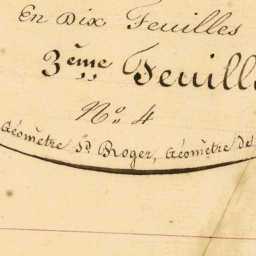 En Dix Feuilles
3ème Feuill
No 4
Géomètre Sd. Broger, Géomètre de